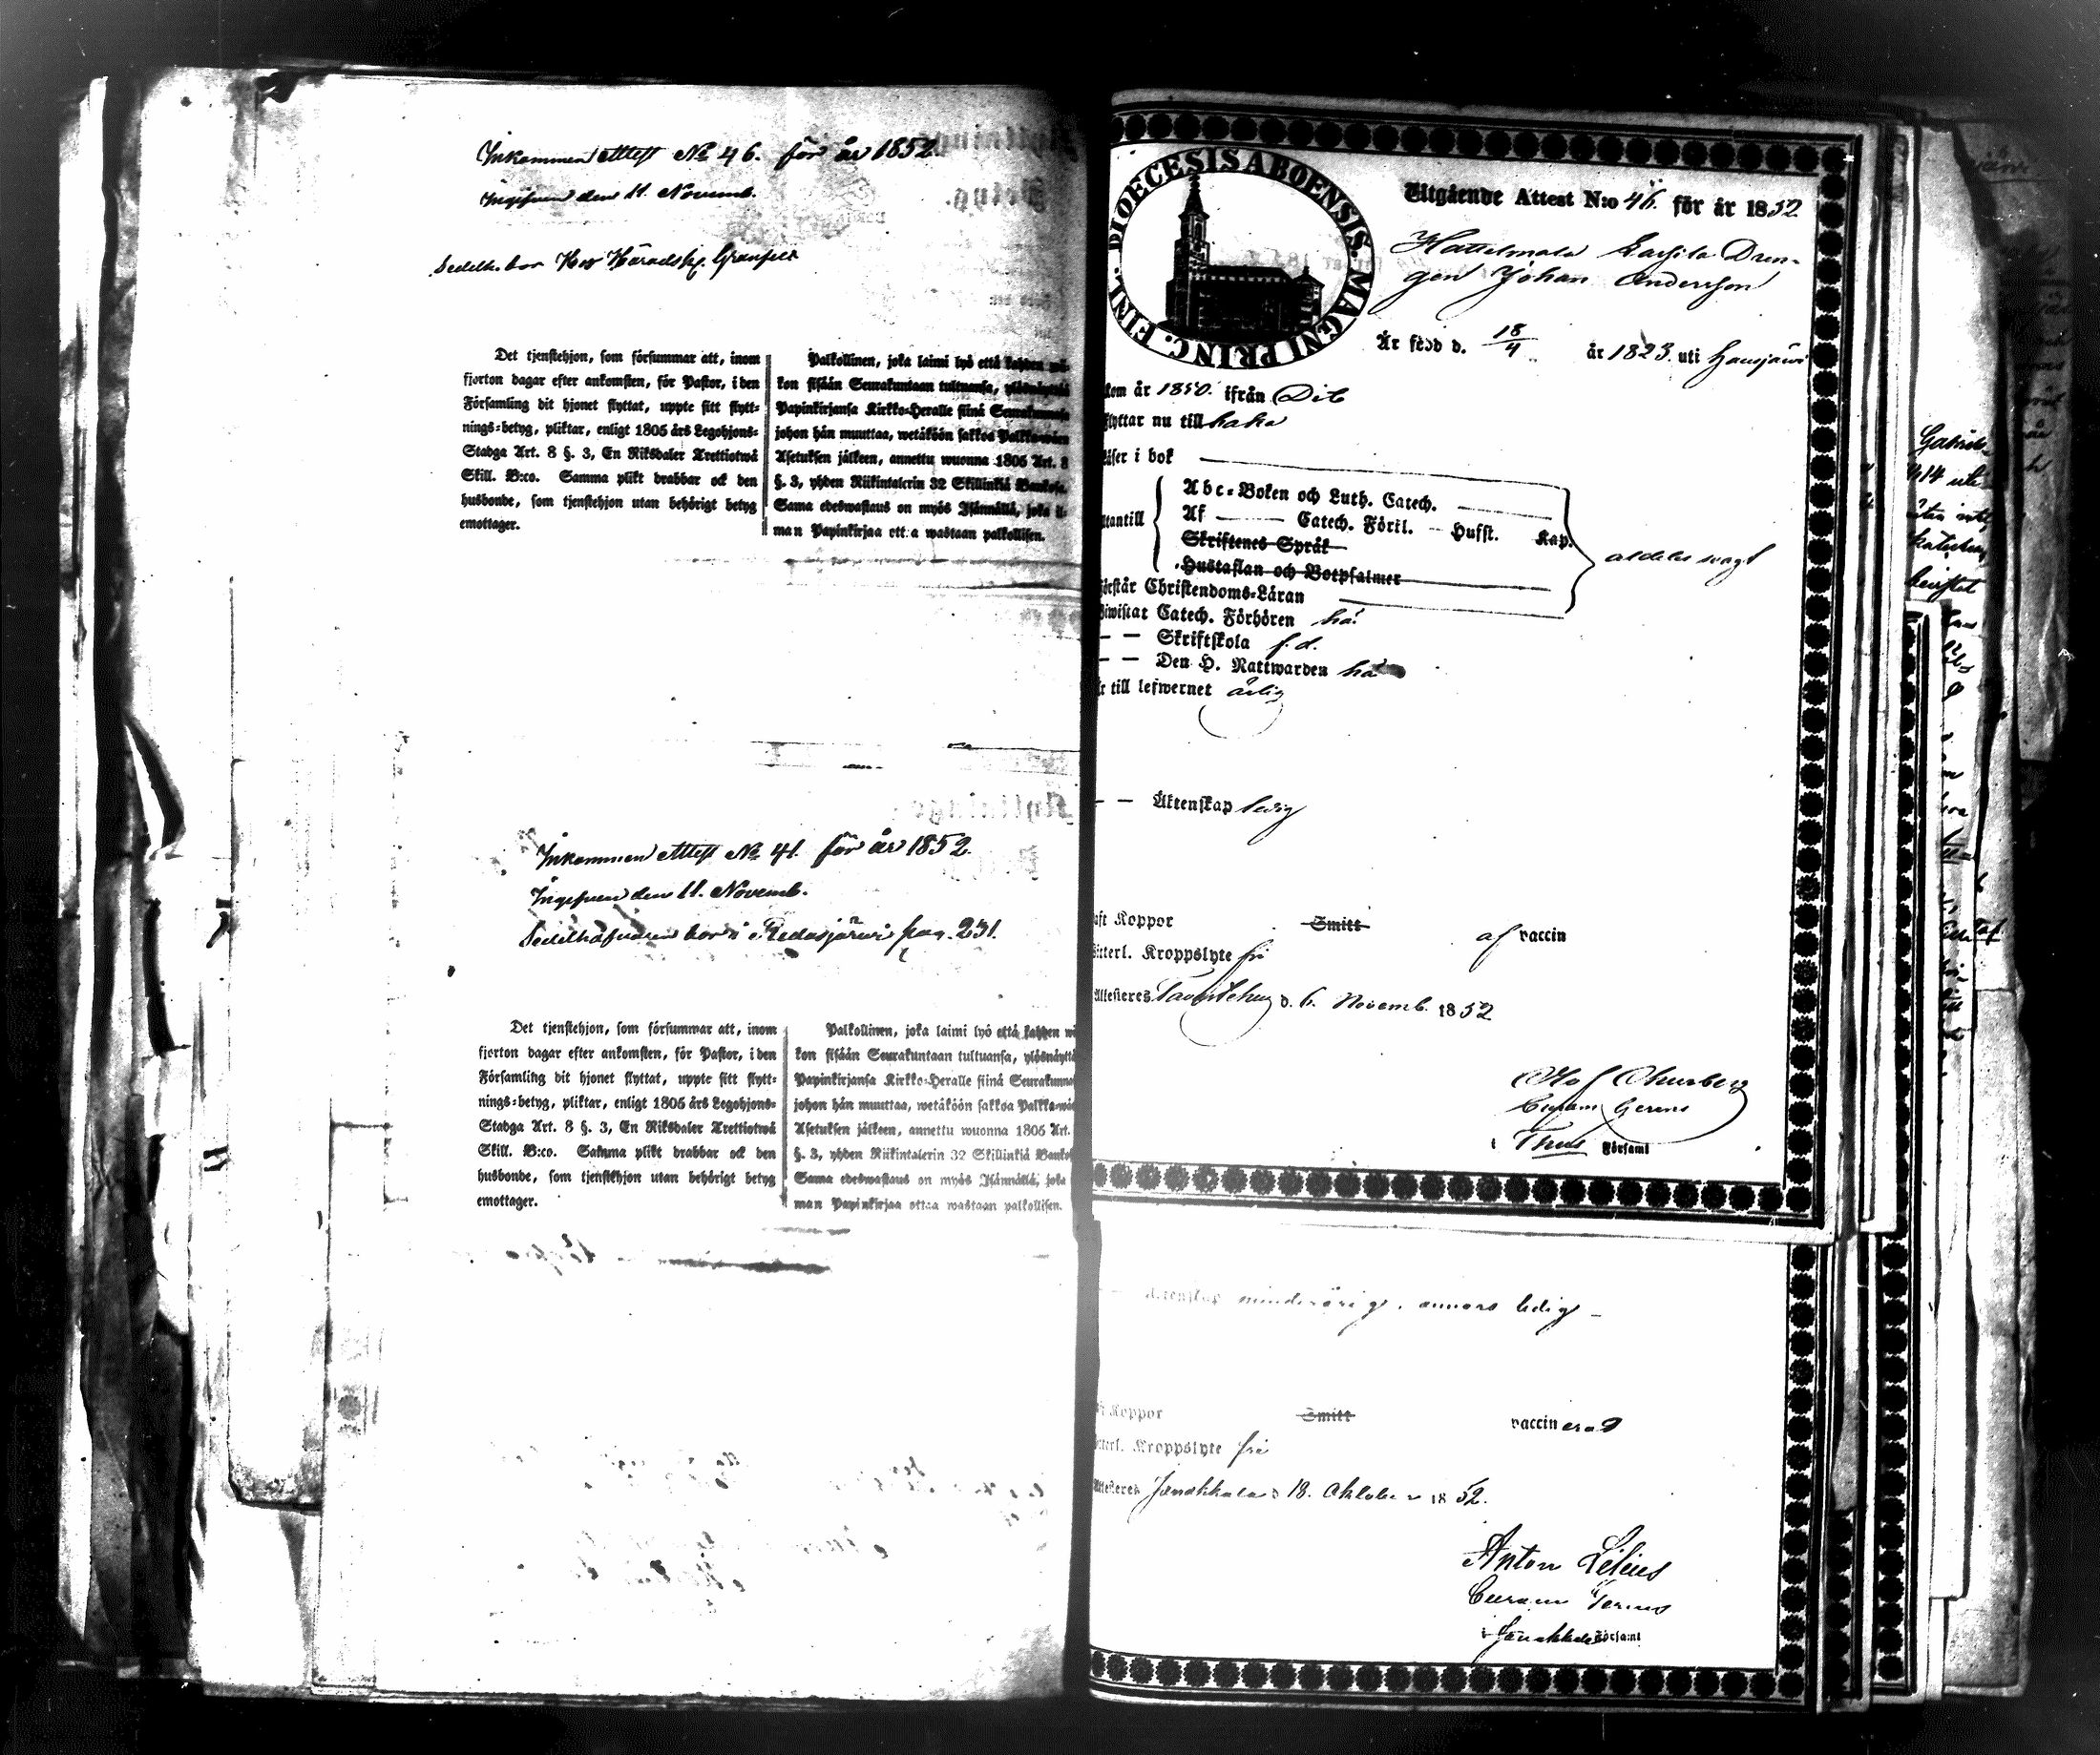 Inkommen Attest No 46. för år 1852.
Ingifven den 11. Novemb.
Sedelh. bor Hos Häradshöf. Granfelt
Det tjenstehjon, som försummar att, inom
fjorton dagar efter ankomsten, för Pastor, i den
Församling dit hjonet flyttat, uppte sitt flytt-
nings-betyg, pliktar, enligt 1805 års Legohjons-
Stadga Art. 8 §. 3, En Riksdaler Trettiotwå
Skill. B:co. Samma plikt drabbar ock den
husbonde, som tjenstehjon utan behörigt betyg
emottager.
Palkollinen, joka laimi lyö että kahden wii-
kon sisään Seurakuntaan tultuansa, ylösnäyttää
Papinkirjansa Kirkko-Heralle siinä Seurakunnasa
johon hän muuttaa, wetäköön sakkoa Palkkawäen
Asetuksen jälkeen, annettu wuonna 1805 Art. 8
§. 3, yhden Riikintalerin 32 Skillinkiä Bankosa.
Sama edeswastaus on myös Isännällä, joka il-
man Papinkirjaa ottaa wastaan palkollisen.
Inkommen Attest No 41. för år 1852.
Ingifven den 11. Novemb.
Sedelhafvaren bor i Hedasjärwi pag. 231.
Det tjenstehjon, som försummar att, inom
fjorton dagar efter ankomsten, för Pastor, i den
Församling dit hjonet flyttat, uppte sitt flytt-
nings-betyg, pliktar, enligt 1805 års Legohjons-
Stadga Art. 8 §. 3, En Riksdaler Trettiotwå
Skill. B:co. Samma plikt drabbar ock den
husbonde, som tjenstehjon utan behörigt betyg
emottager.
Palkollinen, joka laimi lyö että kahden wi
kon sisään Seurakuntaan tultuansa, ylösnäyttä
Papinkirjansa Kirkko-Heralle siinä Seurakunna
johon hän muuttaa, wetäköön sakkoa Palkka-wäe
Asetuksen jälkeen, annettu wuonna 1805 Art.
§. 3, yhden Riikintalerin 32 Skillinkiä Banko
Sama edeswastaus on myös Isännällä, joka
man Papinkirjaa ottaa wastaan palkollisen.
FINL. DIOECESIS ABOENSIS. MAGNI PRINC.
Utgående Attest N:o 46. för år 1852
Hattelmala Larsila Dren-
gen Johan Andersson
Är född d. 18/4 år 1823. uti Hausjärwi
kom år 1850. ifrån Dito
flyttar nu till Loka
läser i bok
utantill
Abc-Boken och Luth. Catech.
Af Catech. Föril. Hufst. Kap.
Skriftenes Språk
Hustaflan och Botpsalmer
aldeles svagt
förstår Christendoms-Läran
biwistat Catech. Förhören
Skriftskola f. d.
Den H. Nattwarden
är till lefwernet ärlig
Äktenskap ledig
haft Koppor Smitt af vaccin
Kroppslyte fri
Attesteres Tavastehus d. 6. Novemb. 1852
Olof Churberg
Curam Gerens
i Thus Församl
Äktenskap minderårig, annars ledig
Koppor Smitt vaccinerad
Kroppslyte fri
Attesteres Janakkala d 18. Oktober 1852.
Anton Lilius
Curam Gerens
i Janakkala Församl